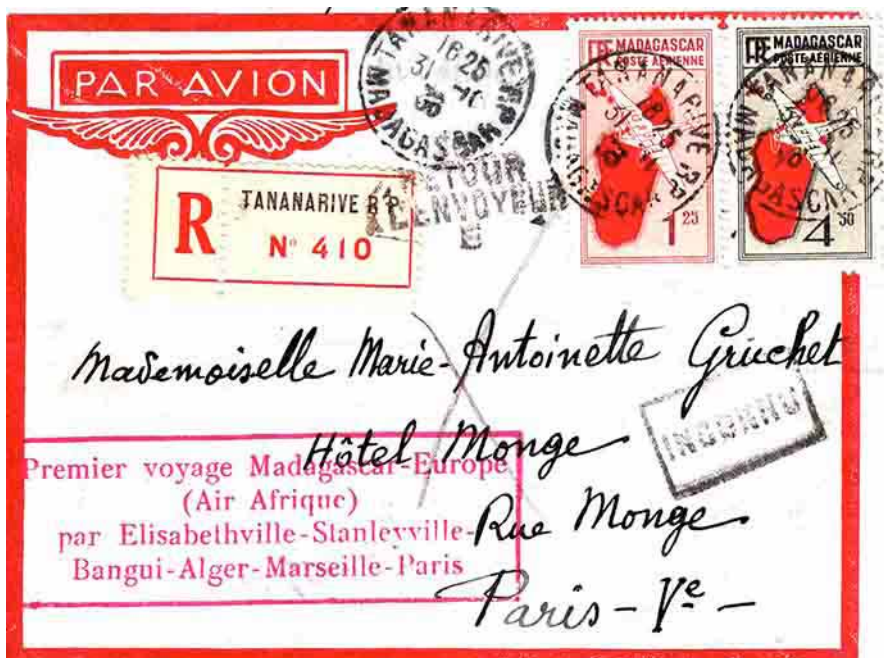 PAR AVION
TANANARIVE R.P.
MADAGASCAR
16 25
31
RF MADAGASCAR
POSTE AÉRIENNE
1 25
RF MADAGASCAR
POSTE AÉRIENNE
4 50
RETOUR
A L'ENVOYEUR
R
TANANARIVE R P
N° 410
Mademoiselle Marie-Antoinette Gruchet
Hôtel Monge
Rue Monge
Paris - Ve -
INCONNU
Premier voyage Madagascar-Europe
(Air Afrique)
par Elisabethville-Stanleyville-
Bangui-Alger-Marseille-Paris